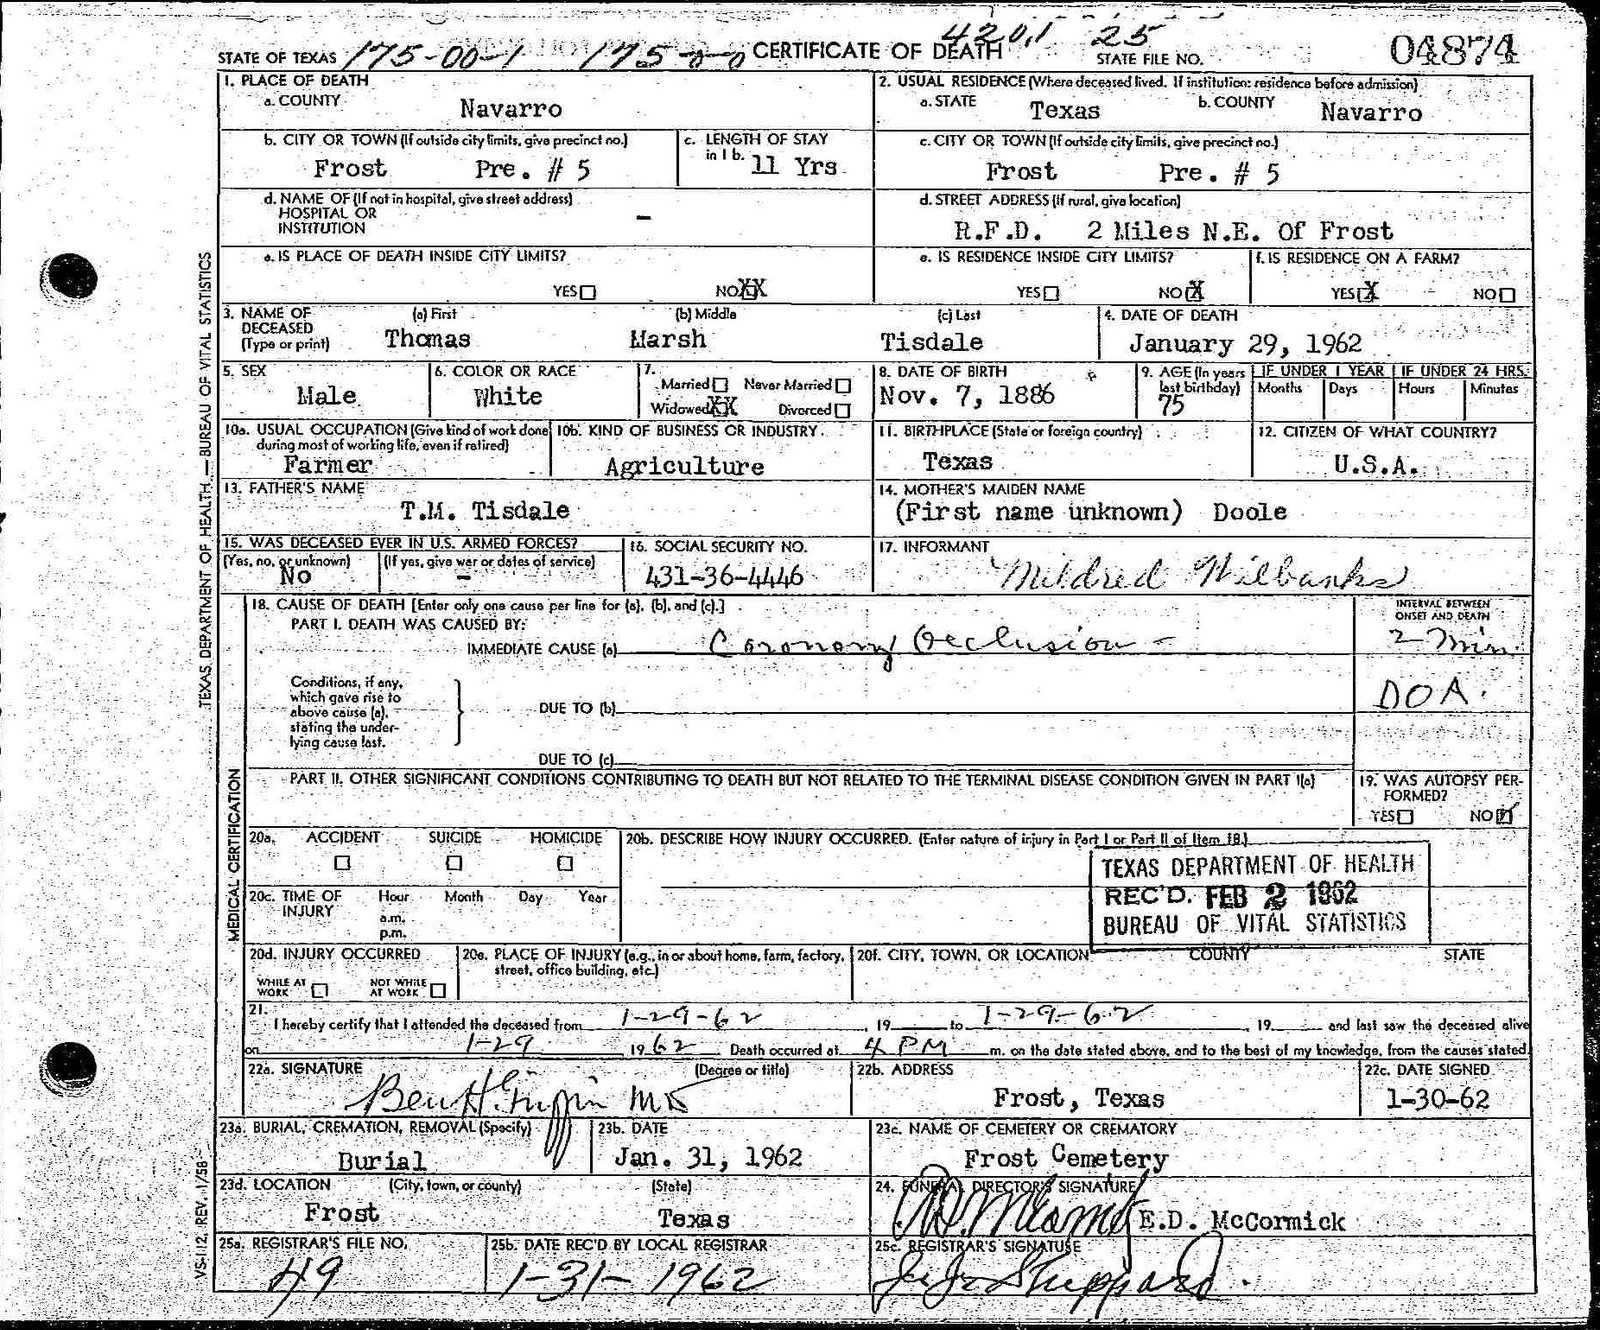 STATE OF TEXAS 175-00-1 175-0-0 CERTIFICATE OF DEATH 420.1 25 STATE FILE NO. 04874
1. PLACE OF DEATH
a. COUNTY Navarro
2. USUAL RESIDENCE (Where deceased lived. If institution: residence before admission)
a. STATE Texas b. COUNTY Navarro
b. CITY OR TOWN (If outside city limits, give precinct no.)
Frost Pre. # 5
c. LENGTH OF STAY
in 1 b. 11 Yrs.
c. CITY OR TOWN (If outside city limits, give precinct no.)
Frost Pre. # 5
d. NAME OF (If not in hospital, give street address)
HOSPITAL OR
INSTITUTION -
d. STREET ADDRESS (If rural, give location)
R.F.D. 2 Miles N.E. Of Frost
e. IS PLACE OF DEATH INSIDE CITY LIMITS?
YES NO XX
e. IS RESIDENCE INSIDE CITY LIMITS?
YES NO X
f. IS RESIDENCE ON A FARM?
YES X NO
3. NAME OF DECEASED (Type or print)
(a) First (b) Middle (c) Last
Thomas Marsh Tisdale
4. DATE OF DEATH
January 29, 1962
5. SEX
Male
6. COLOR OR RACE
White
7.
Married Never Married
Widowed XX Divorced
8. DATE OF BIRTH
Nov. 7, 1886
9. AGE (In years last birthday)
75
IF UNDER 1 YEAR IF UNDER 24 HRS.
Months Days Hours Minutes
10a. USUAL OCCUPATION (Give kind of work done during most of working life, even if retired)
Farmer
10b. KIND OF BUSINESS OR INDUSTRY.
Agriculture
11. BIRTHPLACE (State or foreign country)
Texas
12. CITIZEN OF WHAT COUNTRY?
U.S.A.
13. FATHER'S NAME
T.M. Tisdale
14. MOTHER'S MAIDEN NAME
(First name unknown) Doole
15. WAS DECEASED EVER IN U.S. ARMED FORCES?
(Yes, no, or unknown) (If yes, give war or dates of service)
No -
16. SOCIAL SECURITY NO.
431-36-4446
17. INFORMANT
Mildred Wilbanks
18. CAUSE OF DEATH [Enter only one cause per line for (a), (b), and (c).]
PART I. DEATH WAS CAUSED BY:
IMMEDIATE CAUSE (a) Coronary Occlusion -
INTERVAL BETWEEN
ONSET AND DEATH
2 min.
DOA.
Conditions, if any,
which gave rise to
above cause (a),
stating the under-
lying cause last.
DUE TO (b)
DUE TO (c)
PART II. OTHER SIGNIFICANT CONDITIONS CONTRIBUTING TO DEATH BUT NOT RELATED TO THE TERMINAL DISEASE CONDITION GIVEN IN PART I(a)
19. WAS AUTOPSY PER-
FORMED?
YES NO
20a. ACCIDENT SUICIDE HOMICIDE
20b. DESCRIBE HOW INJURY OCCURRED. (Enter nature of injury in Part I or Part II of Item 18.)
TEXAS DEPARTMENT OF HEALTH
REC'D. FEB 2 1962
BUREAU OF VITAL STATISTICS
20c. TIME OF INJURY Hour Month Day Year
a.m.
p.m.
20d. INJURY OCCURRED
WHILE AT WORK NOT WHILE AT WORK
20e. PLACE OF INJURY (e.g., in or about home, farm, factory, street, office building, etc.)
20f. CITY, TOWN, OR LOCATION COUNTY STATE
21.
I hereby certify that I attended the deceased from 1-29-62, 19 to 1-29-62, 19 and last saw the deceased alive
on 1-29 1962. Death occurred at 4 PM m. on the date stated above, and to the best of my knowledge, from the causes stated.
22a. SIGNATURE (Degree or title)
Ben H. MD
22b. ADDRESS
Frost, Texas
22c. DATE SIGNED
1-30-62
23a. BURIAL, CREMATION, REMOVAL (Specify)
Burial
23b. DATE
Jan. 31, 1962
23c. NAME OF CEMETERY OR CREMATORY
Frost Cemetery
23d. LOCATION (City, town, or county) (State)
Frost Texas
24. FUNERAL DIRECTOR'S SIGNATURE
E.D. McCormick
25a. REGISTRAR'S FILE NO.
49
25b. DATE REC'D BY LOCAL REGISTRAR
1-31-1962
25c. REGISTRAR'S SIGNATURE
Sheppard.
TEXAS DEPARTMENT OF HEALTH — BUREAU OF VITAL STATISTICS
MEDICAL CERTIFICATION
VS-112, REV. 1/58